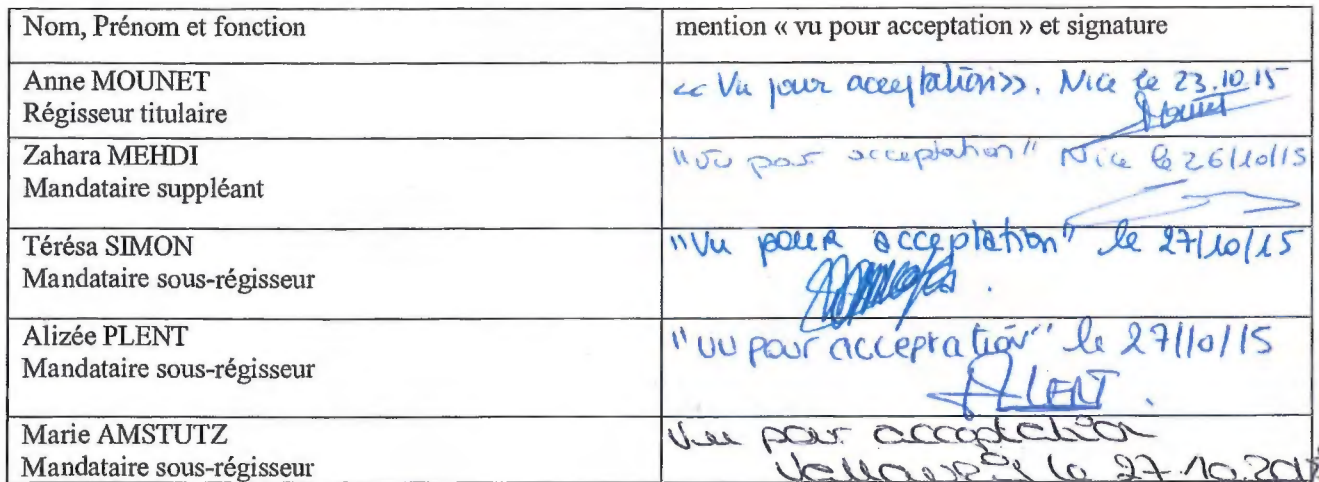 Nom, Prénom et fonction
mention « vu pour acceptation » et signature
Anne MOUNET
Régisseur titulaire
<< Vu pour acceptation>>. Nice le 23.10.15
Zahara MEHDI
Mandataire suppléant
"Vu pour acceptation" Nice le 26/10/15
Térésa SIMON
Mandataire sous-régisseur
"Vu pour acceptation" le 27/10/15
Alizée PLENT
Mandataire sous-régisseur
"vu pour acceptation" le 27/10/15
PLENT
Marie AMSTUTZ
Mandataire sous-régisseur
Vu pour acceptation
le 27.10.2015